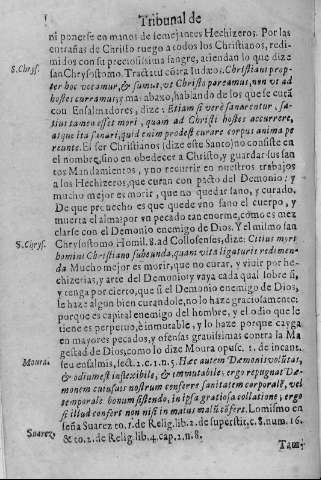 Tribunal de
ni ponerse en manos de semejantes Hechizeros. Por las
entrañas de Christo ruego a todos los Christianos, redi-
midos con su preciosissima sangre, atiendan lo que dize
S. Chrys. san Chrysostomo. Tractatu cōtra Iudæos. Christiani prop-
ter hoc vocamur, & sumus, vt Christo pareamus, non vt ad
hostes curramus; y mas abaxo, hablando de los que se curā
con Ensalmadores, dize: Etiam si verè sanarentur, sa-
tius tamen esset mori, quam ad Christi hostes accurrere,
atque ita sanari, quid enim prodest curare corpus anima pe
reunte. El ser Christianos (dize este Santo) no consiste en
el nombre, sino en obedecer a Christo, y guardar sus san
tos Mandamientos, y no recurrir en nuestros trabajos
a los Hechizeros, que curan con pacto del Demonio: y
mucho mejor es morir, que no quedar sano, y curado.
De que prouecho es que quede vno sano el cuerpo, y
muerta el alma por vn pecado tan enorme, como es mez
clarse con el Demonio enemigo de Dios. Y el mismo san
S. Chrys. Chrysostomo Homil. 8. ad Collosenses, dize: Citius myri
homini Christiano subeunda, quam vita ligaturis redimen-
da Mucho mejor es morir, que no curar, y viuir por he-
chizerias, y arte del Demonio y vaya cada qual sobre si,
y tenga por cierto, que si el Demonio enemigo de Dios,
le haze algun bien curandole, no lo haze graciosamente:
porque es capital enemigo del hombre, y el odio que le
tiene es perpetuo, è inmutable, y lo haze porque cayga
en mayores pecados, y ofensas grauissimas contra la Ma
Moura. gestad de Dios, como lo dize Moura opusc. 1. de incant.
seu ensalmis, sect. 2. c. 1. n. 5. Hæc autem Dæmonis volūtat,
& odium est inflexibile, & immutabile: ergo repugnat Dæ-
monem cuiusuis nostrum conferre sanitatem corporalē, vel
temporale bonum sistendo, in ipsa gratiosa collatione; ergo
si illud confert non nisi in maius malū cōfert. Lo mismo en
seña Suarez to. 1. de Relig. lib. 2. de superstit. c. 8. num. 16.
Suarez, & to. 2. de Relig. lib. 4. cap. 2. n. 8.